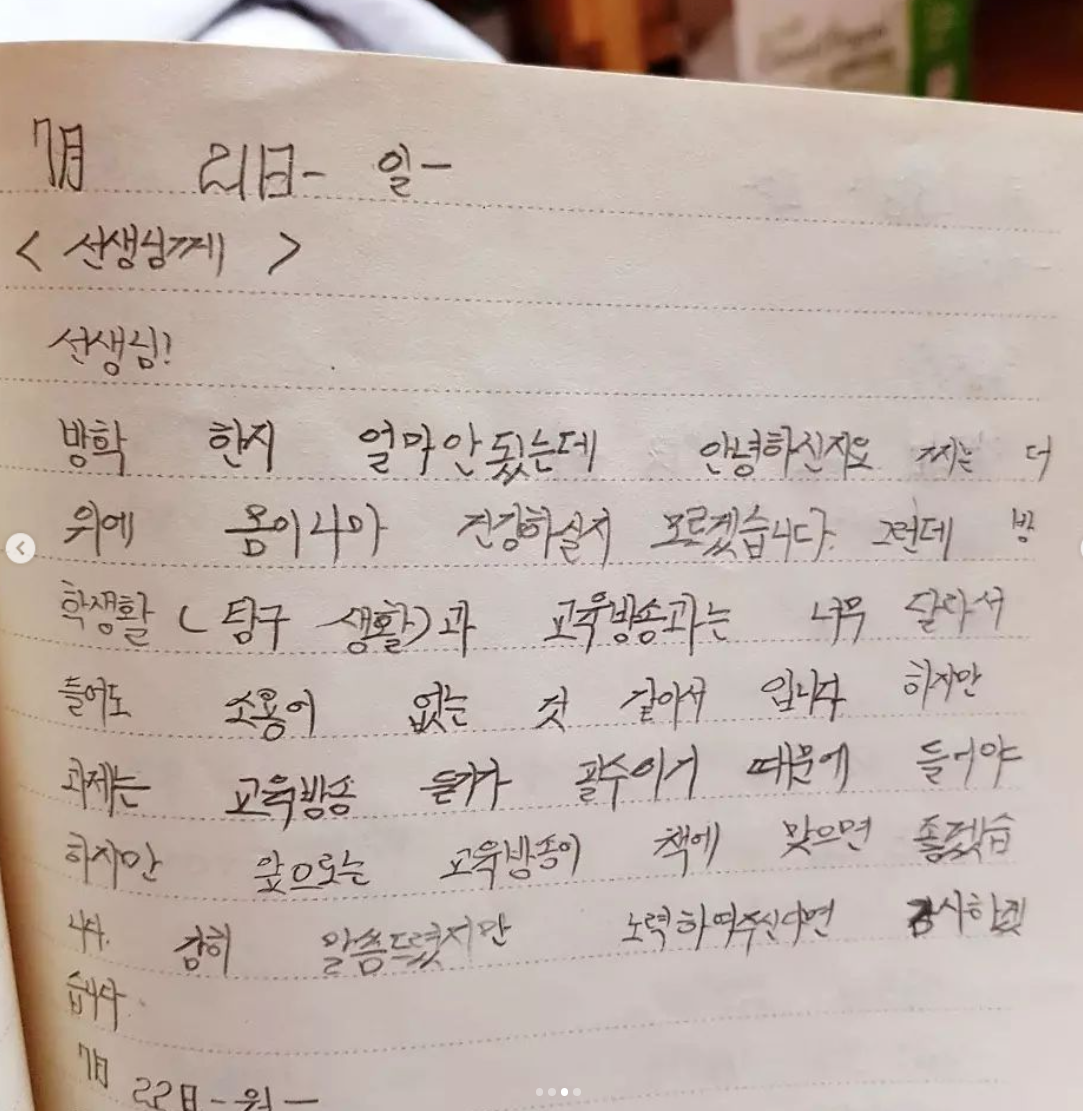 7月 21日- 일-
< 선생님께 >
선생님!
방학 한지 얼마안됬는데 안녕하신지요 찌는 더
위에 몸이나마 건강하실지 모르겠습니다. 그런데 방
학생활 (탐구 생활)과 교육방송과는 너무 달라서
들어도 소용이 없는 것 같아서 입니다 하지만
과제는 교육방송 듣기가 괄수이기 때문에 들어야
하지만 앞으로는 교육방송이 책에 맞으면 좋겠습
니다. 감히 말씀드렸지만 노력하여주신다면 감사하겠
습니다.
7月 22日-월-